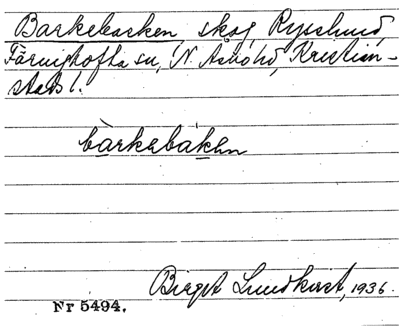 Barkebacken, skog, Rysslund,
Färingtofta sn, N. Åsbo hd, Kristian-
stads l.
bàrkebaken
Birgit Lundkvist, 1936.
Nr 5494.